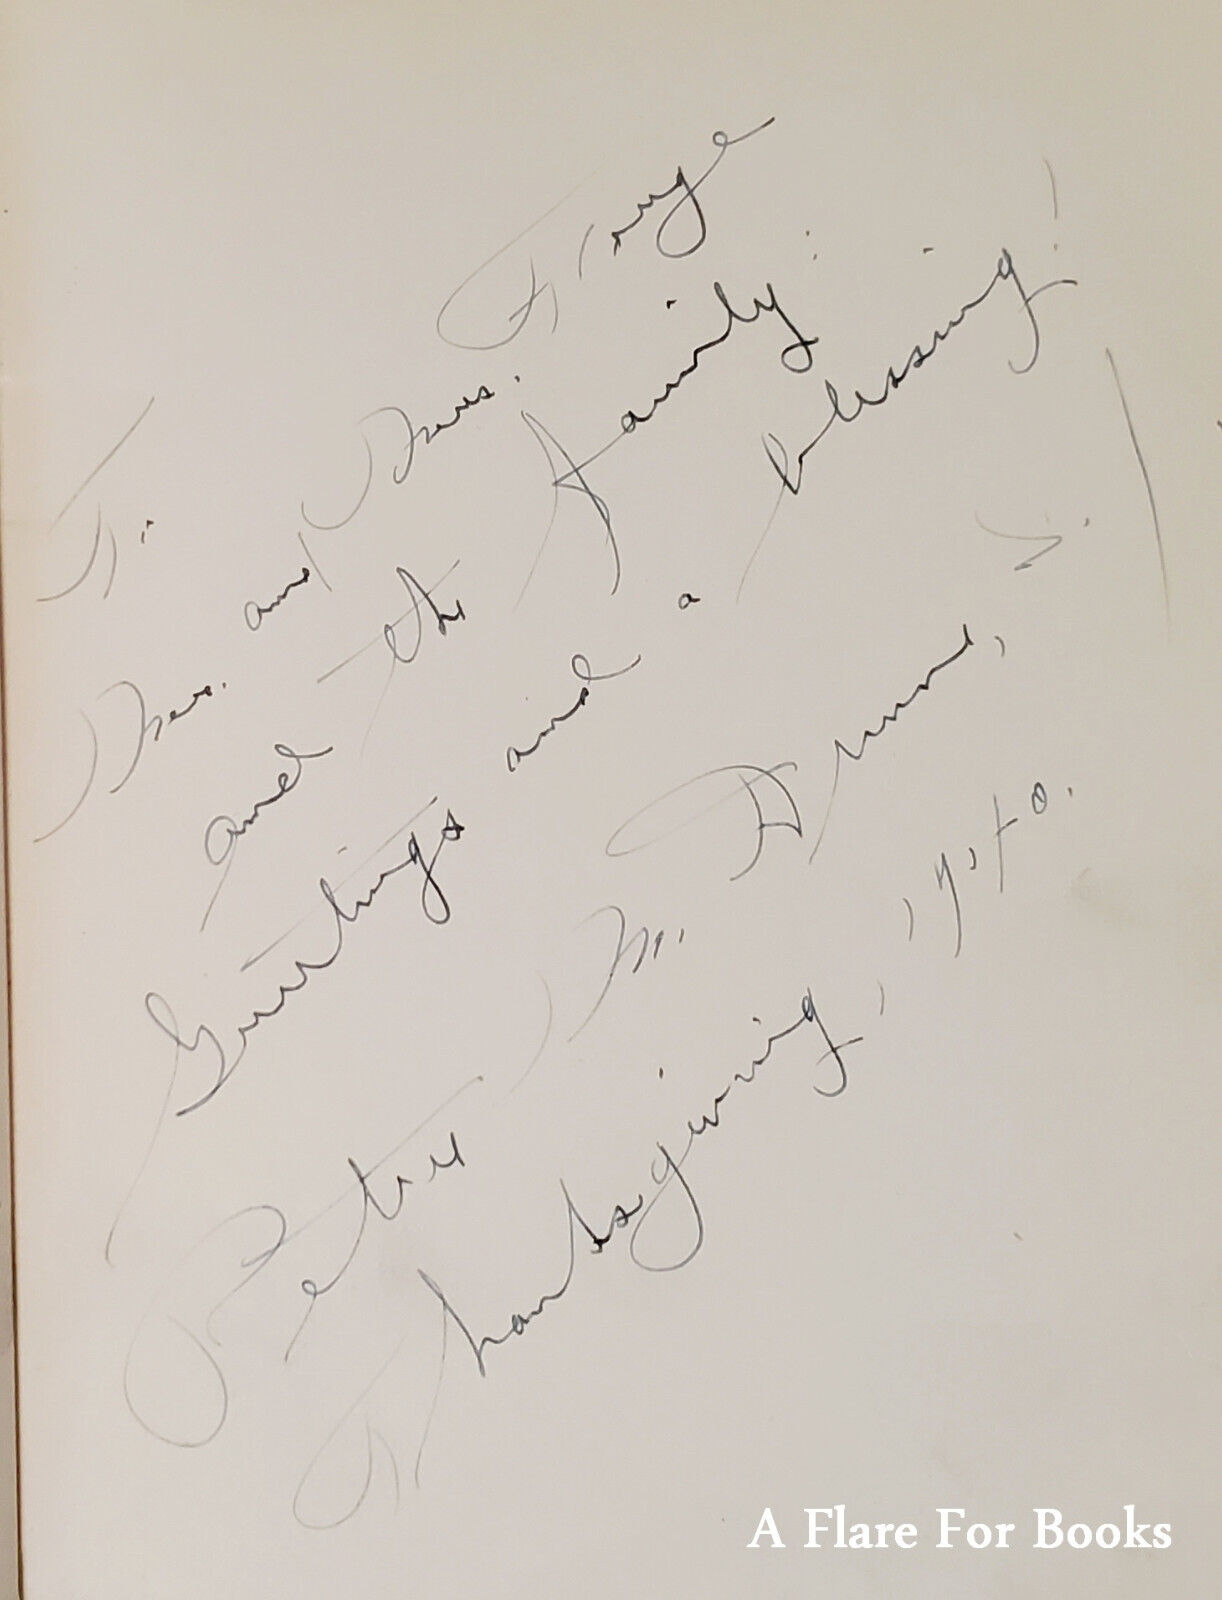 To:
Mr. and Mrs. Fruge
and the family:
Greetings and a blessing!
Peter M. Dunne, S.J.
Thanksgiving,
A Flare For Books